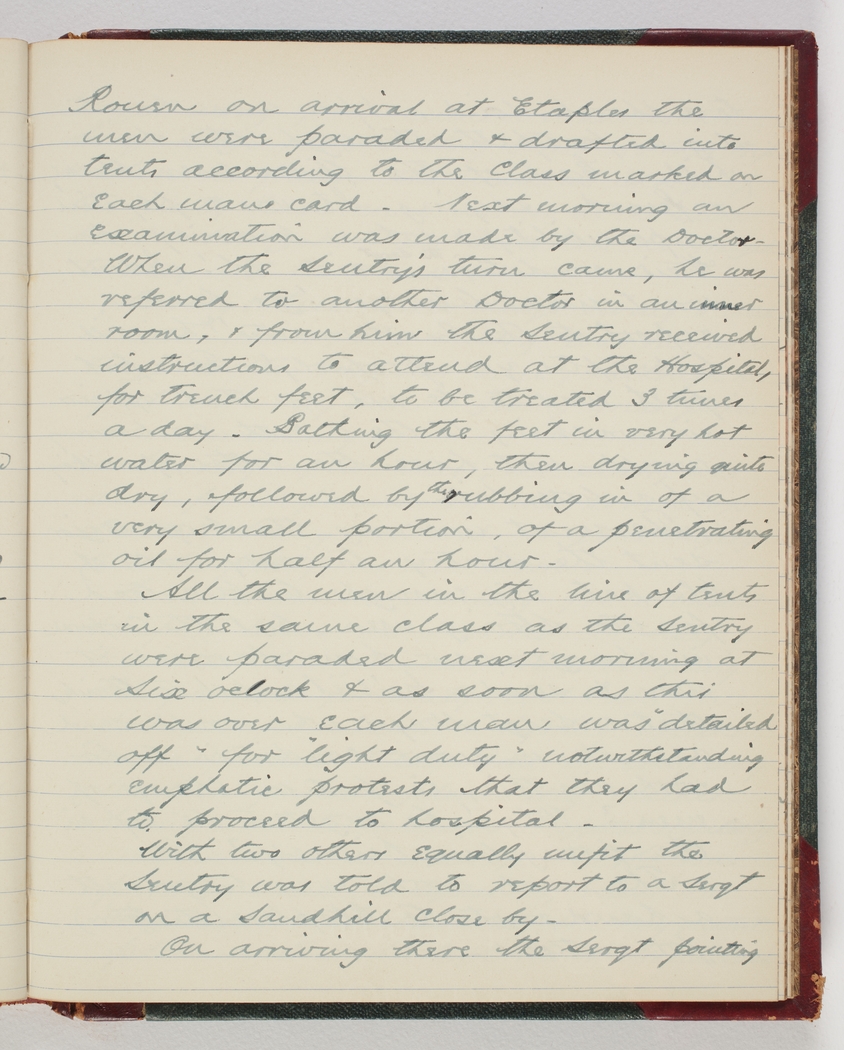 Rouen on arrival at Etaples the
men were paraded & drafted into
tents according to the Class marked on
Each mans card - Next morning an
Examination was made by the Doctor -
When the Sentry's turn came, he was
referred to another Doctor in an inner
room, & from him the Sentry received
instructions to attend at the Hospital,
for trench feet, to be treated 3 times
a day. Bathing the feet in very hot
water for an hour, then drying quite
dry, followed by the rubbing in of a
very small portion, of a penetrating
oil for half an hour -
All the men in the line of tents
in the same class as the Sentry
were paraded next morning at
Six oclock & as soon as this
was over Each man was "detailed
off" for "light duty" notwithstanding
emphatic protests that they had
to proceed to hospital -
With two others Equally unfit the
Sentry was told to report to a Sergt
on a Sandhill close by -
On arriving there the Sergt pointing